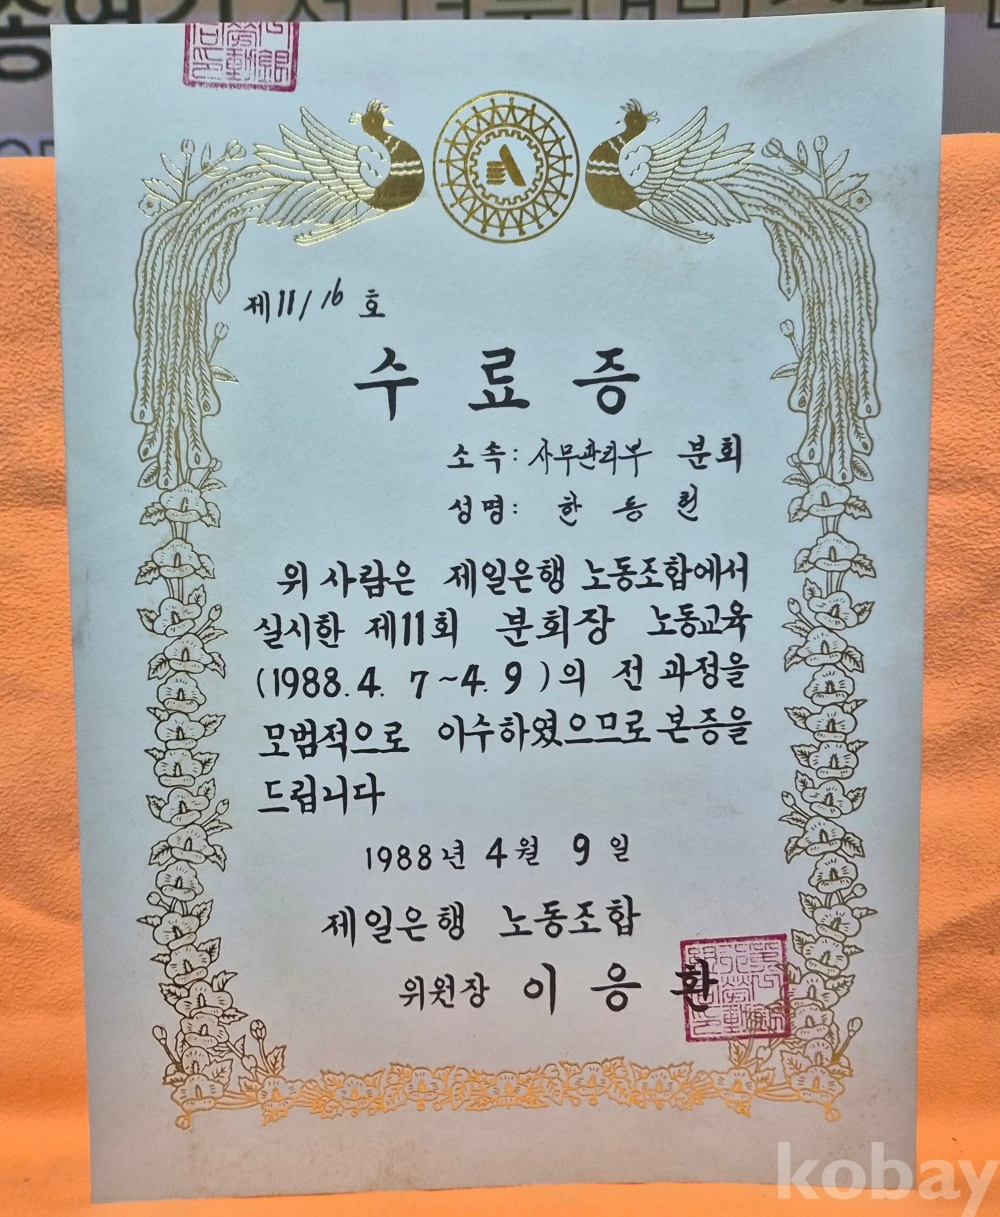 제11/16호
수료증
소속: 사무관리부 분회
성명: 한동원
위 사람은 제일은행 노동조합에서
실시한 제11회 분회장 노동교육
(1988. 4. 7~4. 9)의 전 과정을
모범적으로 이수하였으므로 본증을
드립니다
1988년 4월 9일
제일은행 노동조합
위원장 이응환
kobay